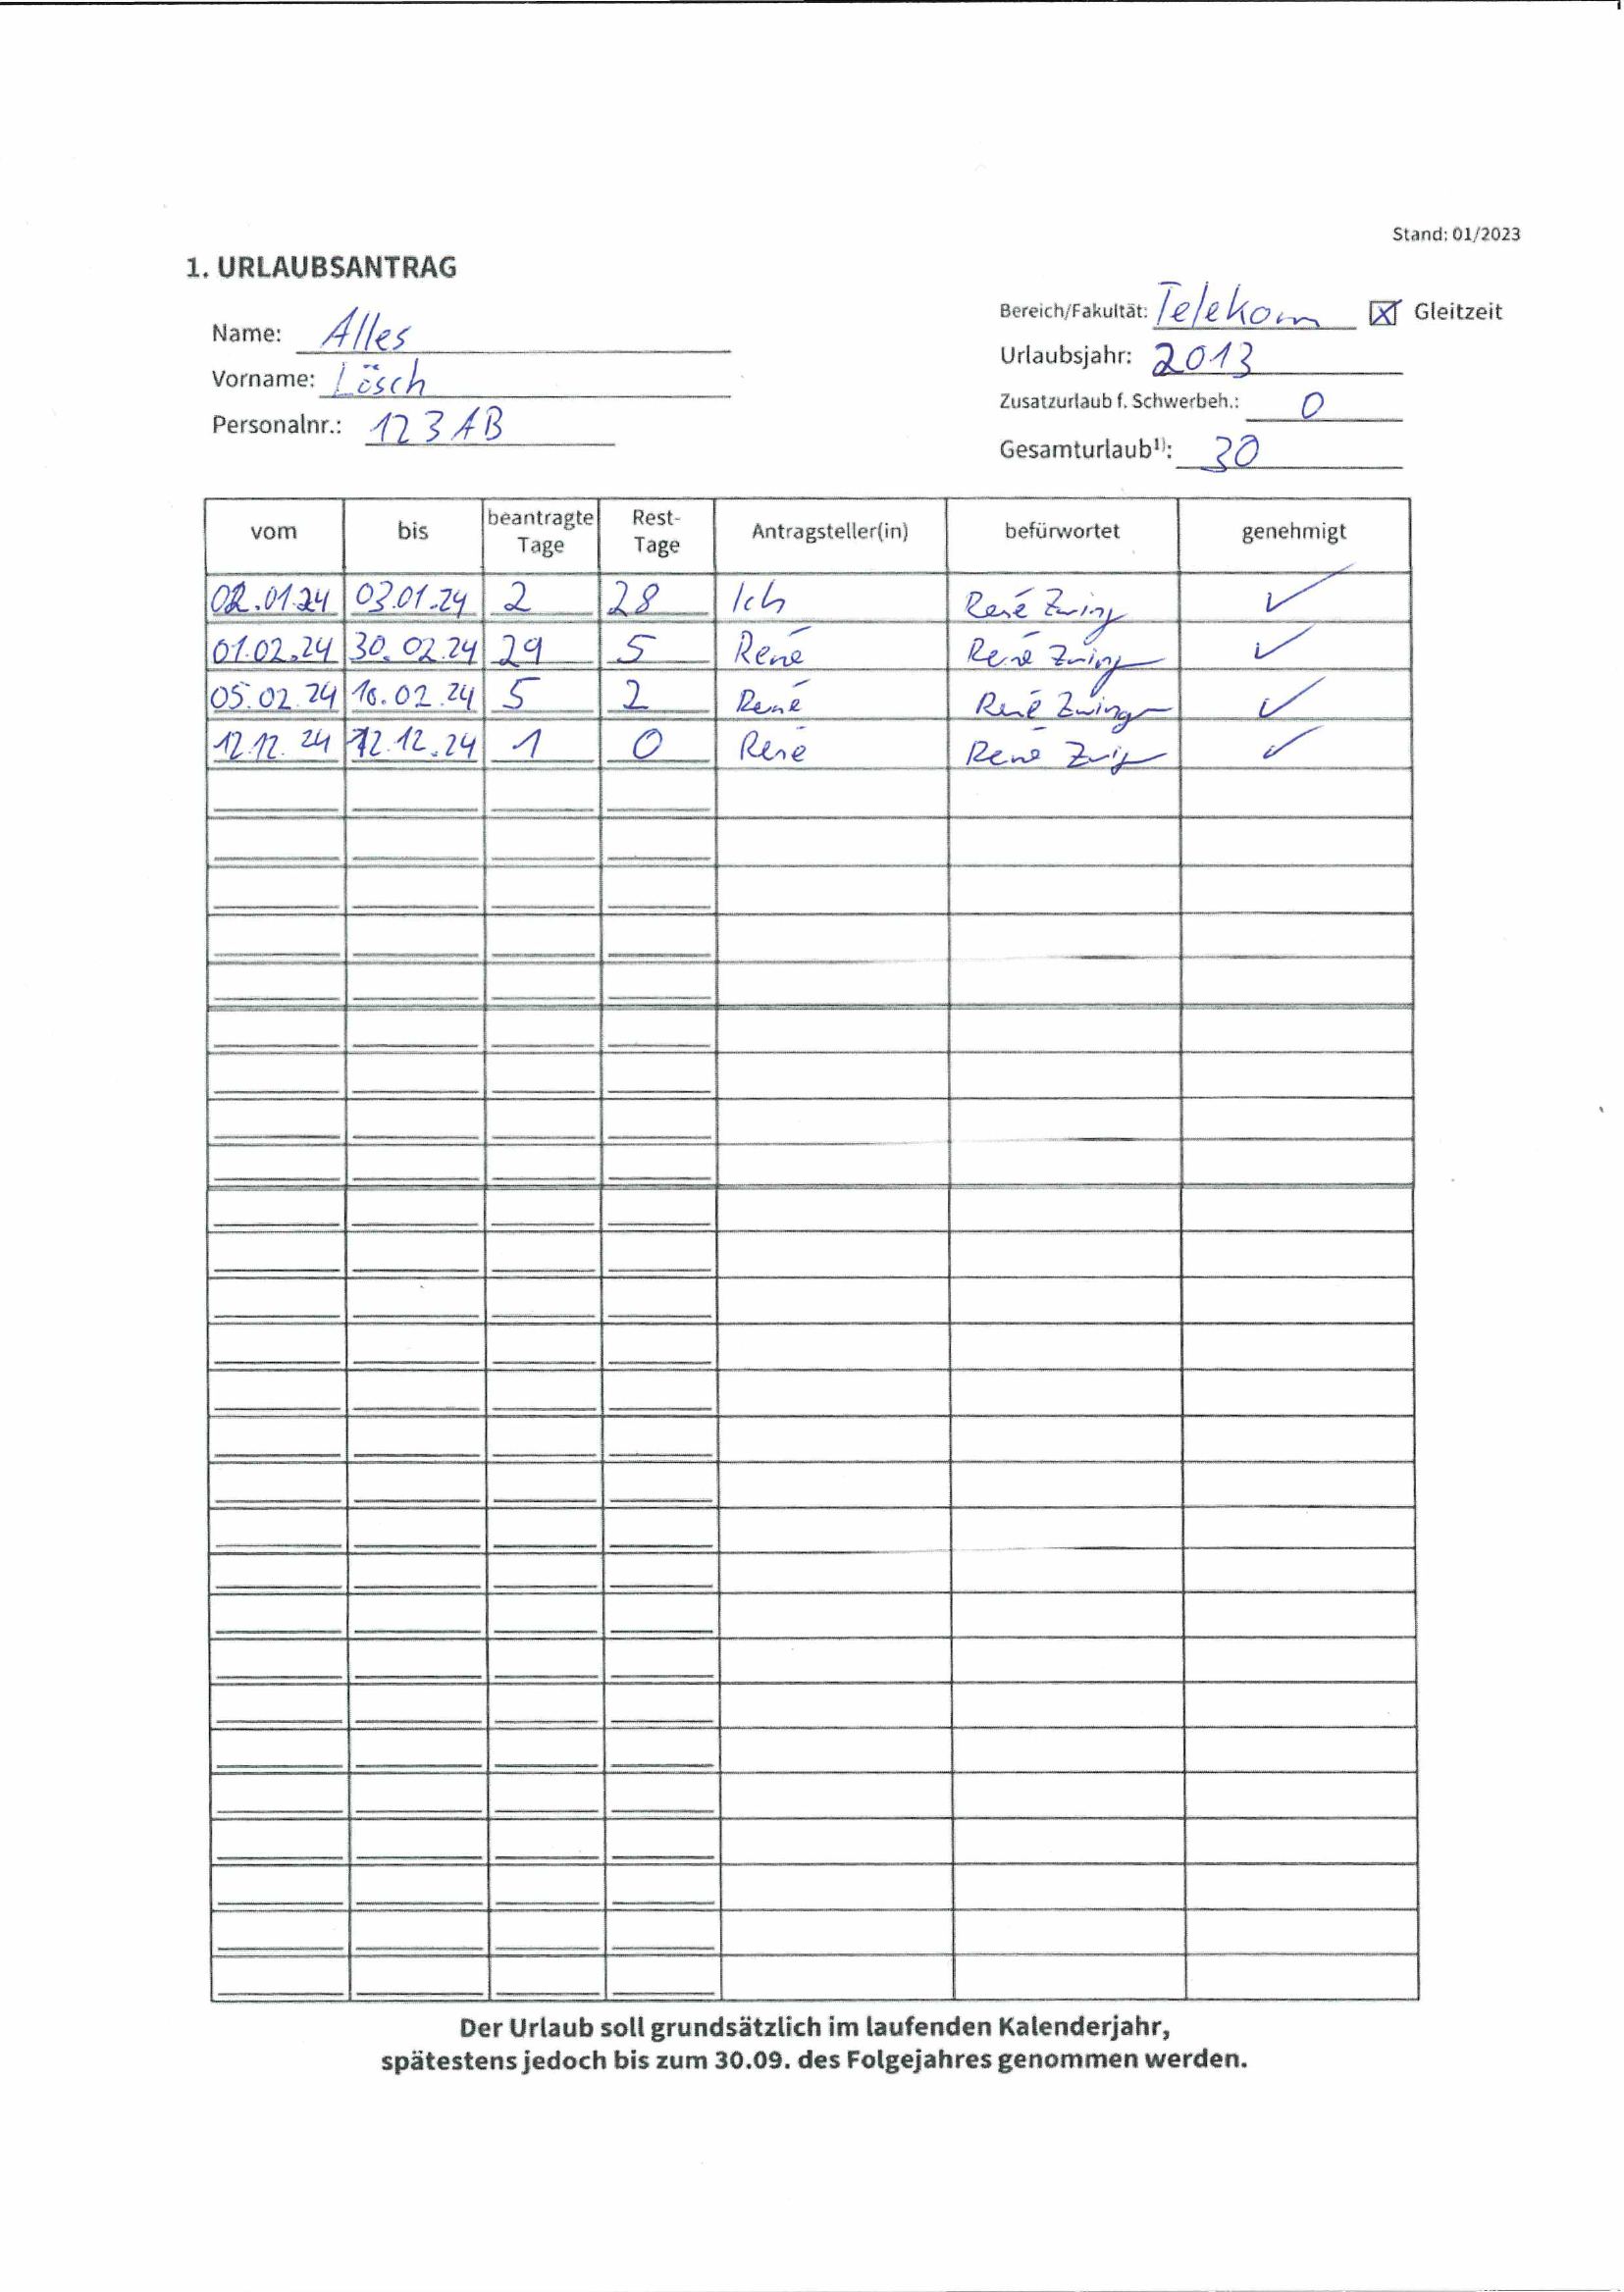 Stand: 01/2023
1. URLAUBSANTRAG
Name: Alles
Vorname: Lösch
Personalnr.: 123AB
Bereich/Fakultät: Telekom ☒ Gleitzeit
Urlaubsjahr: 2013
Zusatzurlaub f. Schwerbeh.: 0
Gesamturlaub¹⁾: 30
vom bis beantragte Tage Rest-Tage Antragsteller(in) befürwortet genehmigt
02.01.24 03.01.24 2 28 Ich René Zwing ✓
01.02.24 30.02.24 29 5 René René Zwing ✓
05.02.24 16.02.24 5 2 René René Zwing ✓
12.12.24 12.12.24 1 0 René René ✓
Der Urlaub soll grundsätzlich im laufenden Kalenderjahr,
spätestens jedoch bis zum 30.09. des Folgejahres genommen werden.